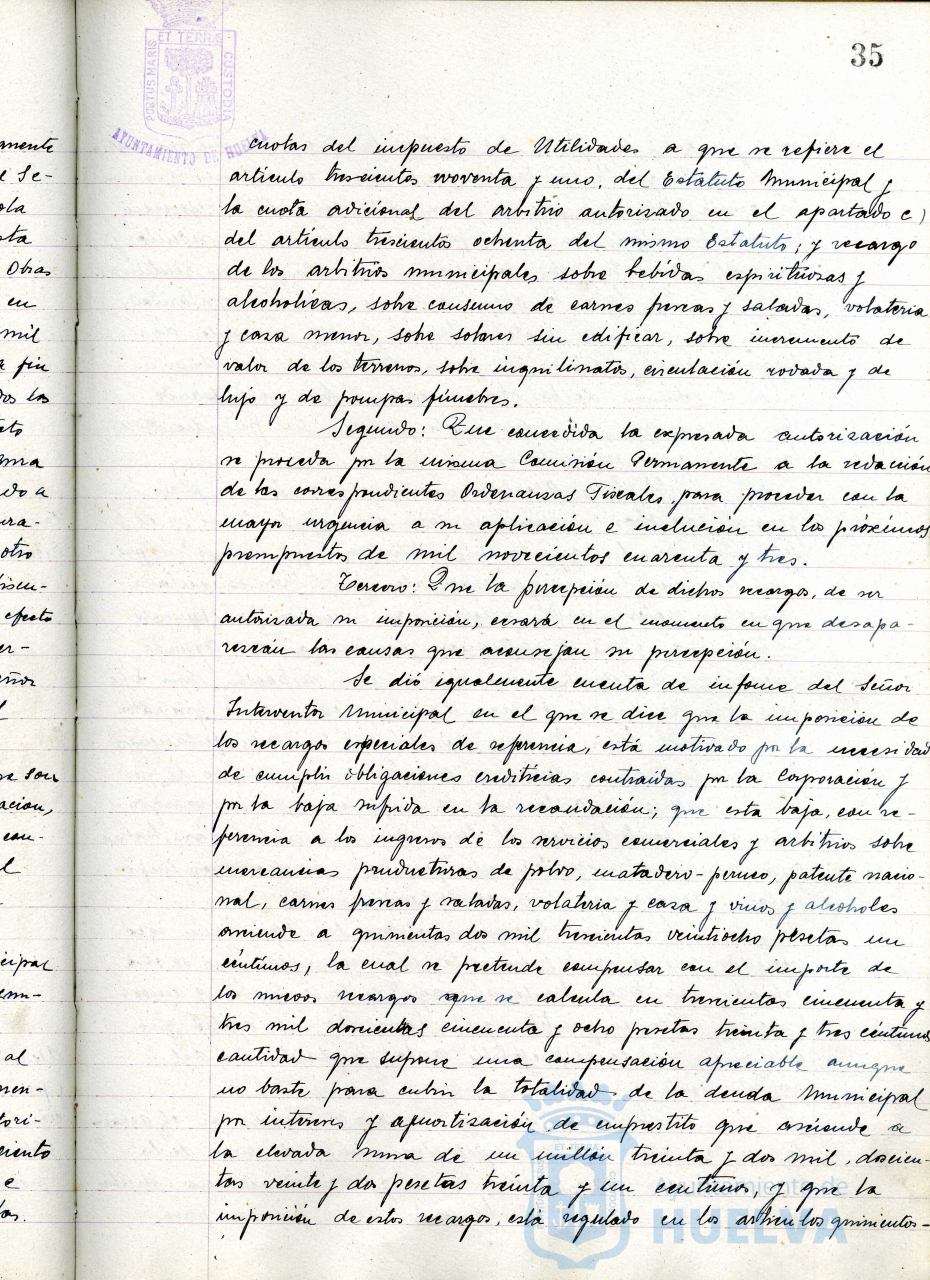 35
PORTUS MARIS ET TERRÆ CUSTODIA
AYUNTAMIENTO DE HUELVA
cuotas del impuesto de Utilidades a que se refiere el
artículo trescientos noventa y uno, del Estatuto Municipal y
la cuota adicional del arbitrio autorizado en el apartado c)
del artículo trescientos ochenta del mismo Estatuto; y recargo
de los arbitrios municipales sobre bebidas espirituosas y
alcoholicas, sobre consumo de carnes frescas y saladas, volateria
y caza menor, sobre solares sin edificar, sobre incremento de
valor de los terrenos, sobre inquilinatos, circulación rodada y de
lujo y de pompas fúnebres.
Segundo: Que concedida la expresada autorización
se proceda por la misma Comisión Permanente a la redacción
de las correspondientes Ordenanzas Fiscales, para proceder con la
mayor urgencia a su aplicación e inclución en los próximos
presupuestos de mil novecientos cuarenta y tres.
Tercero: Que la percepción de dichos recargos, de ser
autorizada su imposición, cesará en el momento en que desapa-
rescan las causas que aconsejan su percepción.
Se dió igualmente cuenta de informe del Señor
Interventor Municipal en el que se dice que la imposición de
los recargos especiales de referencia, está motivado por la necesidad
de cumplir obligaciones crediticias contraidas por la Corporación y
por la baja sufrida en la recaudación; que esta baja, con re-
ferencia a los ingresos de los servicios comerciales y arbitrios sobre
mercancias productoras de polvo, matadero-perneo, patente nacio-
nal, carnes frescas y saladas, volateria y caza y vinos y alcoholes
asciende a quinientas dos mil trescientas veintiocho pesetas un
céntimos, la cual se pretende compensar con el importe de
los nuevos recargos que se calcula en trescientas cincuenta y
tres mil doscientas cincuenta y ocho pesetas treinta y tres céntimos
cantidad que supone una compensación apreciable aunque
no baste para cubrir la totalidad de la deuda Municipal
por intereses y amortización de empréstito que asciende a
la elevada suma de un millón treinta y dos mil, doscien-
tas veinte y dos pesetas treinta y un centimos, y que la
imposición de estos recargos, está regulado en los artículos quinientos-
Ayuntamiento de
HUELVA